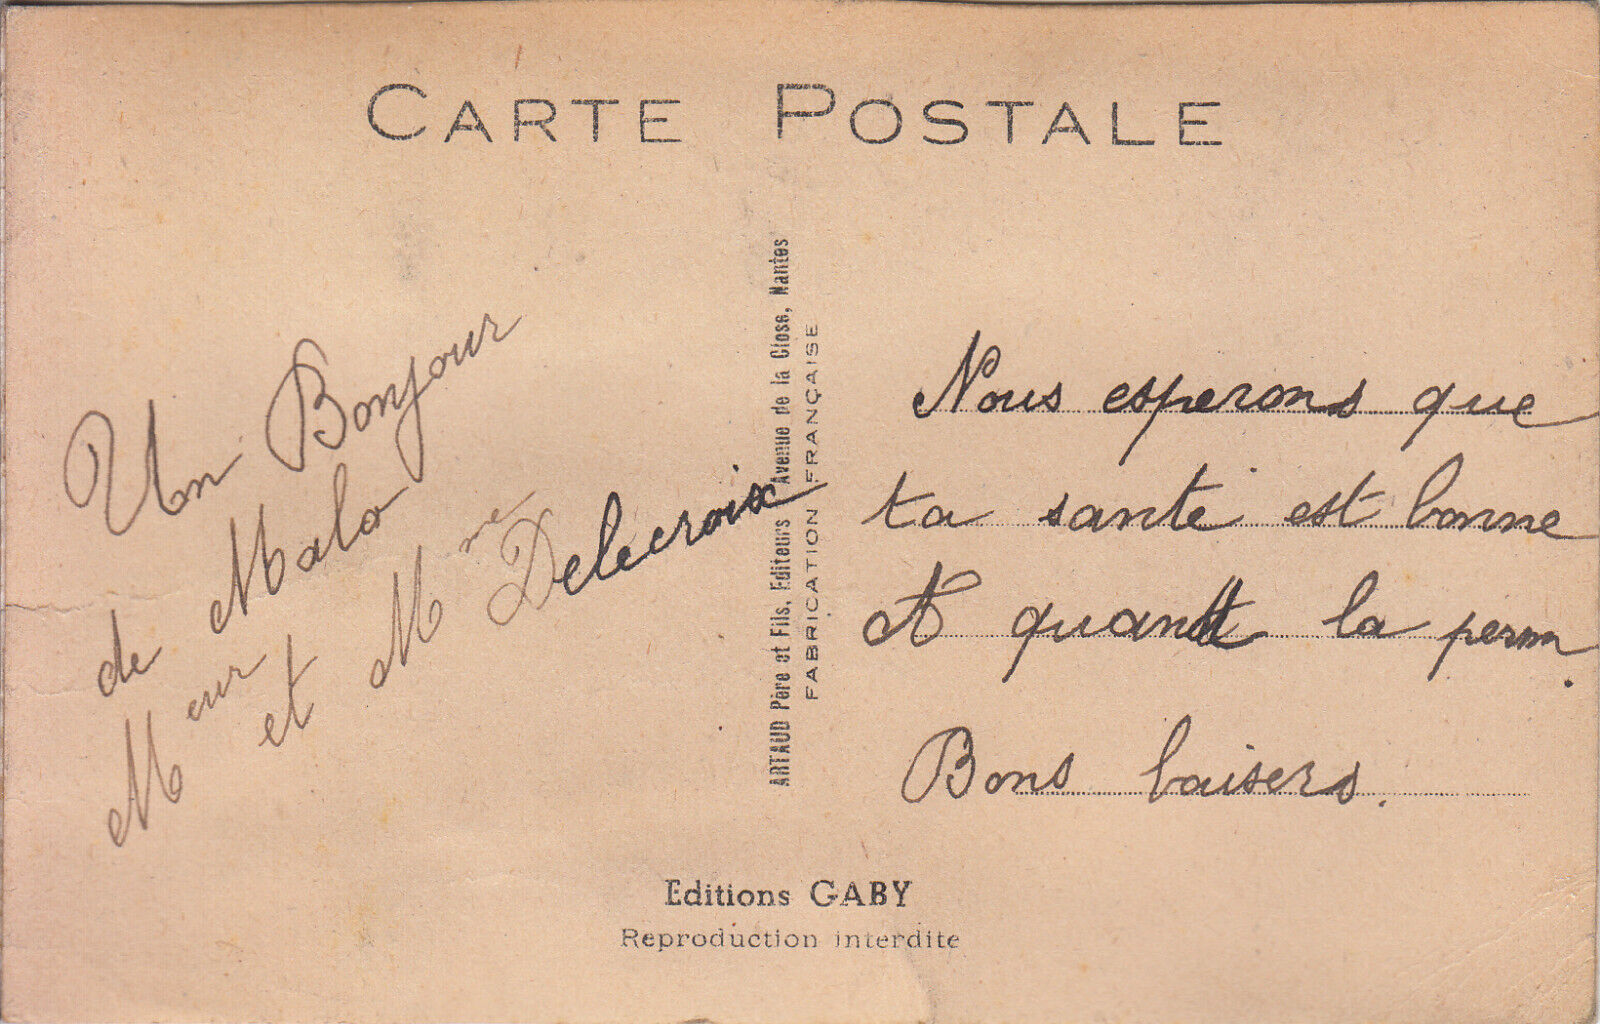 CARTE POSTALE
Un Bonjour
de Malo
Meur
et Mme Delecroix
ARTAUD Père et Fils, Editeurs Avenue de la Close, Nantes
FABRICATION FRANÇAISE
Nous esperons que
ta santé est bonne
A quand la perm.
Bons baisers.
Editions GABY
Reproduction interdite